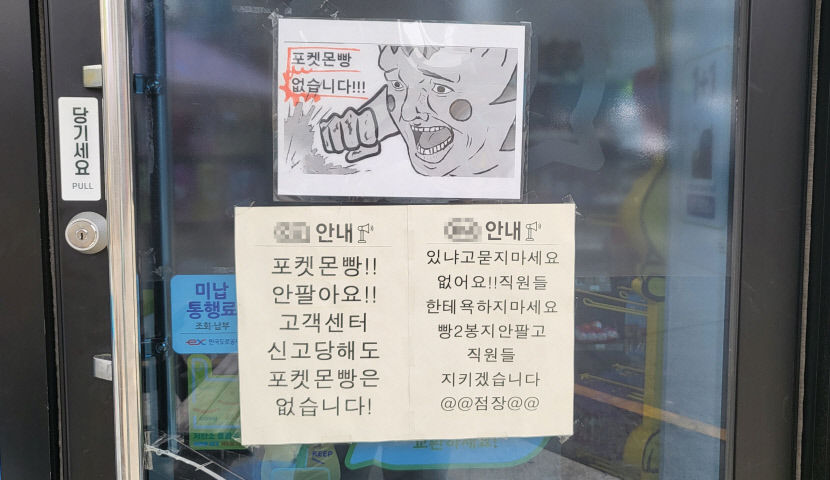 포켓몬빵
없습니다!!!
당기세요
PULL
안내
포켓몬빵!!
안팔아요!!
고객센터
신고당해도
포켓몬빵은
없습니다!
안내
있냐고묻지마세요
없어요!!직원들
한테욕하지마세요
빵2봉지안팔고
직원들
지키겠습니다
@@점장@@
미납
통행료
조회·납부
ex 한국도로공
KEEP